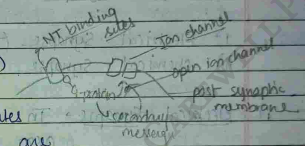 NT binding
sites
Ion channel
open ion channel
G-protein
post synaptic
membrane
secondary
messenger
are